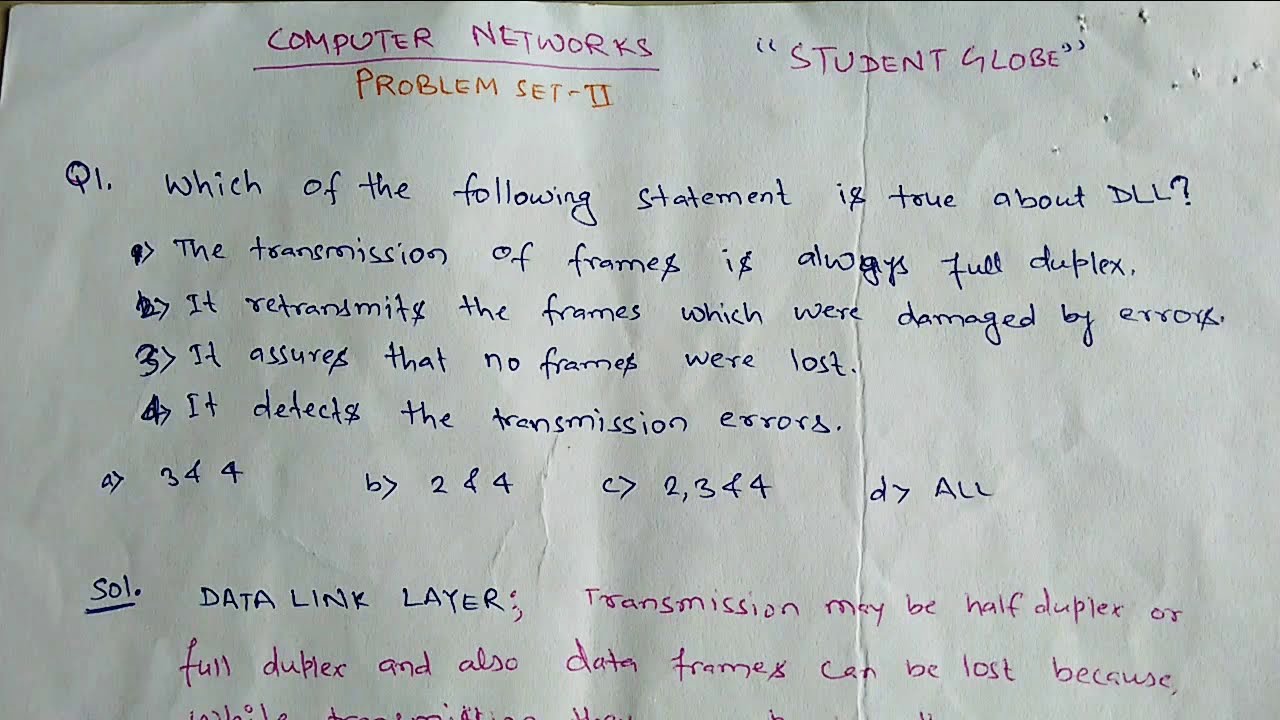 COMPUTER NETWORKS "STUDENT GLOBE"
PROBLEM SET-II
Q1. Which of the following statement is true about DLL?
1) The transmission of frames is always full duplex.
2) It retransmits the frames which were damaged by errors.
3) It assures that no frames were lost.
4) It detects the transmission errors.
a) 3 & 4 b) 2 & 4 c) 2,3 & 4 d) ALL
Sol. DATA LINK LAYER; Transmission may be half duplex or
full duplex and also data frames can be lost because,
while transmission